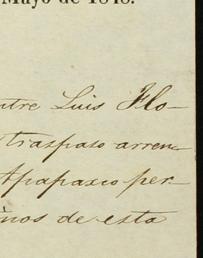 Mayo de 1848.
ntre Luis Flo-
traspaso arren-
Apapaxco per-
de esta